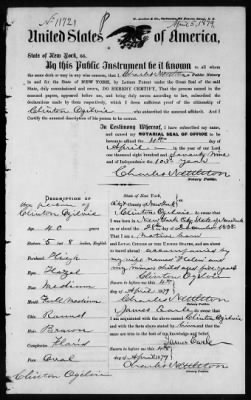 No 11721
April 5, 1879
United States of America.
State of New York, ss.
By this Public Instrument be it known to
all whom the same doth or may in any wise concern, that I, Charles Nettleton Public Notary
in and for the State of NEW YORK, by Letters Patent under the Great Seal of the said
State, duly commissioned and sworn, DO HEREBY CERTIFY, That the persons named in the
annexed papers, appeared before me, and they being by me sworn according to law, subscribed the
declarations made by them respectively, which I deem sufficient proofs of the citizenship of
Clinton Ogilvie the annexed affiant. And I
certify the annexed description of his person to be correct.
In Testimony Whereof, I have subscribed my name,
and caused my NOTARIAL SEAL OF OFFICE to be
hereunto affixed the 4th day of
April in the year of our Lord
one thousand eight hundred and seventy nine
and of Independence the 103d year
Charles Nettleton
Notary Public.
DESCRIPTION OF
the person of
Clinton Ogilvie
Age 40 years
Stature 5 feet 8 inches, English
Forehead High
Eyes Hazel
Nose Medium
Mouth Full medium
Chin Round
Hair Brown
Complexion Florid
Face Oval
Clinton Ogilvie
State of New York,
City & County of New York ss.
I Clinton Ogilvie do swear that I
was born in New York City State of New York
on the day of 1838
that I am a native born
and LOYAL CITIZEN OF THE UNITED STATES, and am
about to travel abroad accompanied by
my wife named Helen and
my minor child aged five years
Clinton Ogilvie
Sworn to before me this 4th
day of April 1879
Charles Nettleton
Notary Public.
I James do swear that
I am acquainted with the above named Clinton Ogilvie
and with the facts above stated by him and
that the same are true to the best of my knowledge and belief.
James
Sworn to before me this 4th
day of April 1879
Charles Nettleton
Notary Public.